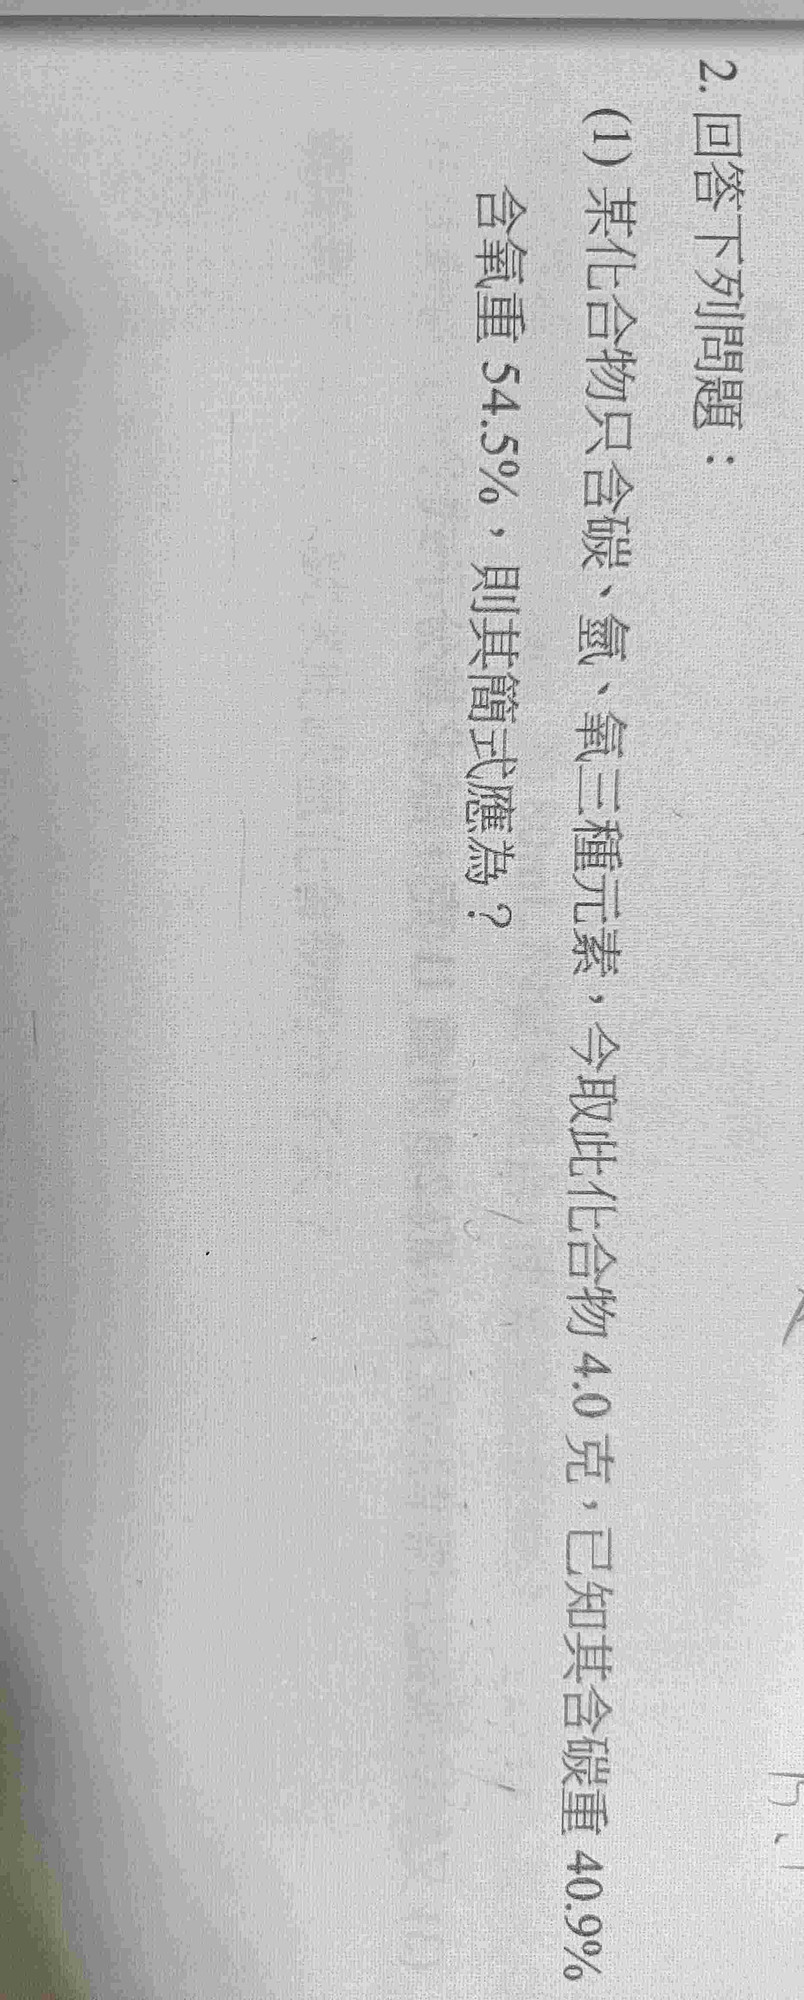 2. 回答下列問題：
(1) 某化合物只含碳、氫、氧三種元素，今取此化合物 4.0 克，已知其含碳重 40.9%
含氧重 54.5%，則其簡式應為？